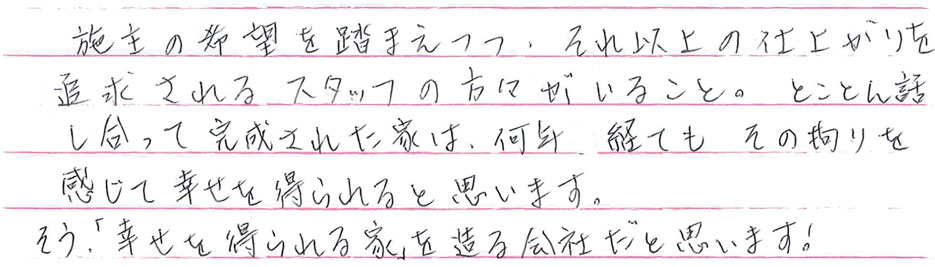 施主の希望を踏まえつつ、それ以上の仕上がりを
追求されるスタッフの方々がいること。とことん話
し合って完成された家は、何年経てもその拘りを
感じて幸せを得られると思います。
そう、「幸せを得られる家」を造る会社だと思います!